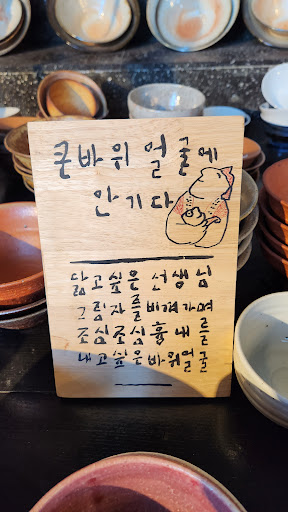 큰바위얼굴에
안기다
닮고싶은 선생님
그림자를 비껴가며
조심조심 흉내를
내고싶은바위얼굴